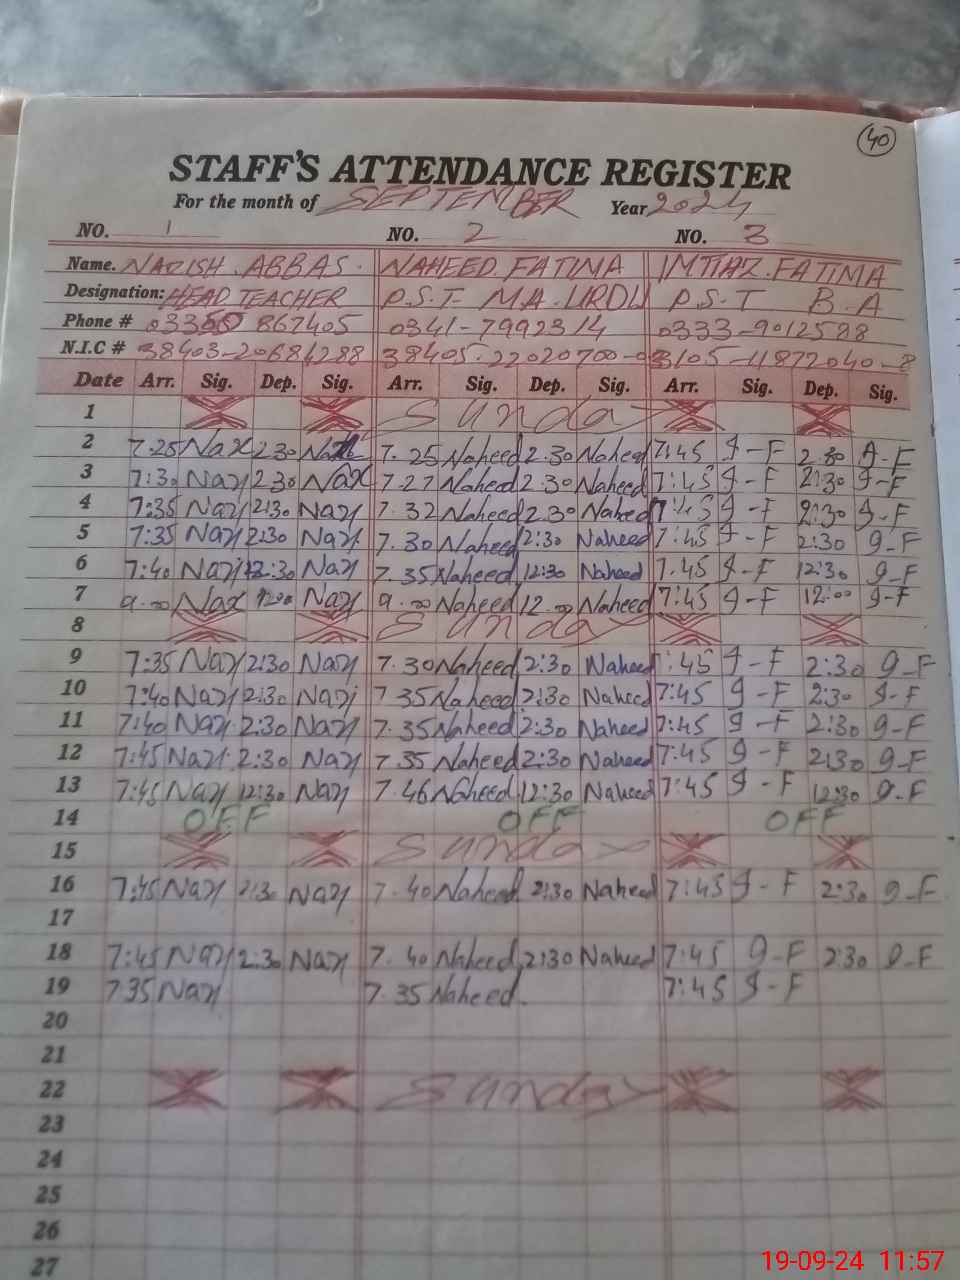 40
STAFF'S ATTENDANCE REGISTER
For the month of SEPTEMBER Year 2024
NO. 1 NO. 2 NO. 3
Name. NAZISH ABBAS. NAHEED FATIMA IMTIAZ FATIMA
Designation: HEAD TEACHER P.S.T M.A. URDU P.S.T B.A
Phone # 0341-7992314 0333-9012588
N.I.C #
Date Arr. Sig. Dep. Sig. Arr. Sig. Dep. Sig. Arr. Sig. Dep. Sig.
1 Sunday
2 7.25 Naz 2.30 7.25 Naheed 2.30 Naheed 7:45 I-F 2.30 I-F
3 7:30 Naz 2.30 Naz 7.27 Naheed 2.30 Naheed 7:45 I-F 2:30 I-F
4 7:35 Naz 2:30 Naz 7.32 Naheed 2.30 Naheed 7:45 I-F 2:30 I-F
5 7:35 Naz 2:30 Naz 7.30 Naheed 2:30 Naheed 7:45 I-F 2:30 I-F
6 7:40 Naz 12:30 Naz 7.35 Naheed 12:30 Naheed 7:45 I-F 12:30 I-F
7 9.00 Naz 12:00 Naz 9.00 Naheed 12.00 Naheed 7:45 I-F 12:00 I-F
8 Sunday
9 7:35 Naz 2:30 Naz 7.30 Naheed 2:30 Naheed 7:45 I-F 2:30 I-F
10 7:40 Naz 2:30 Naz 7 35 Naheed 2:30 Naheed 7:45 I-F 2:30 I-F
11 7:40 Naz 2:30 Naz 7.35 Naheed 2:30 Naheed 7:45 I-F 2:30 I-F
12 7:45 Naz 2:30 Naz 7.35 Naheed 2:30 Naheed 7:45 I-F 2:30 I-F
13 7:45 Naz 12:30 Naz 7.46 Naheed 12:30 Naheed 7:45 I-F 12:30 I-F
14 OFF OFF OFF
15 Sunday
16 7:45 Naz 2:30 Naz 7.40 Naheed 2:30 Naheed 7:45 I-F 2:30 I-F
17
18 7:45 Naz 2:30 Naz 7.40 Naheed 2:30 Naheed 7:45 I-F 2:30 I-F
19 7 35 Naz 7.35 Naheed. 7:45 I-F
20
21
22 Sunday
23
24
25
26
27
19-09-24 11:57